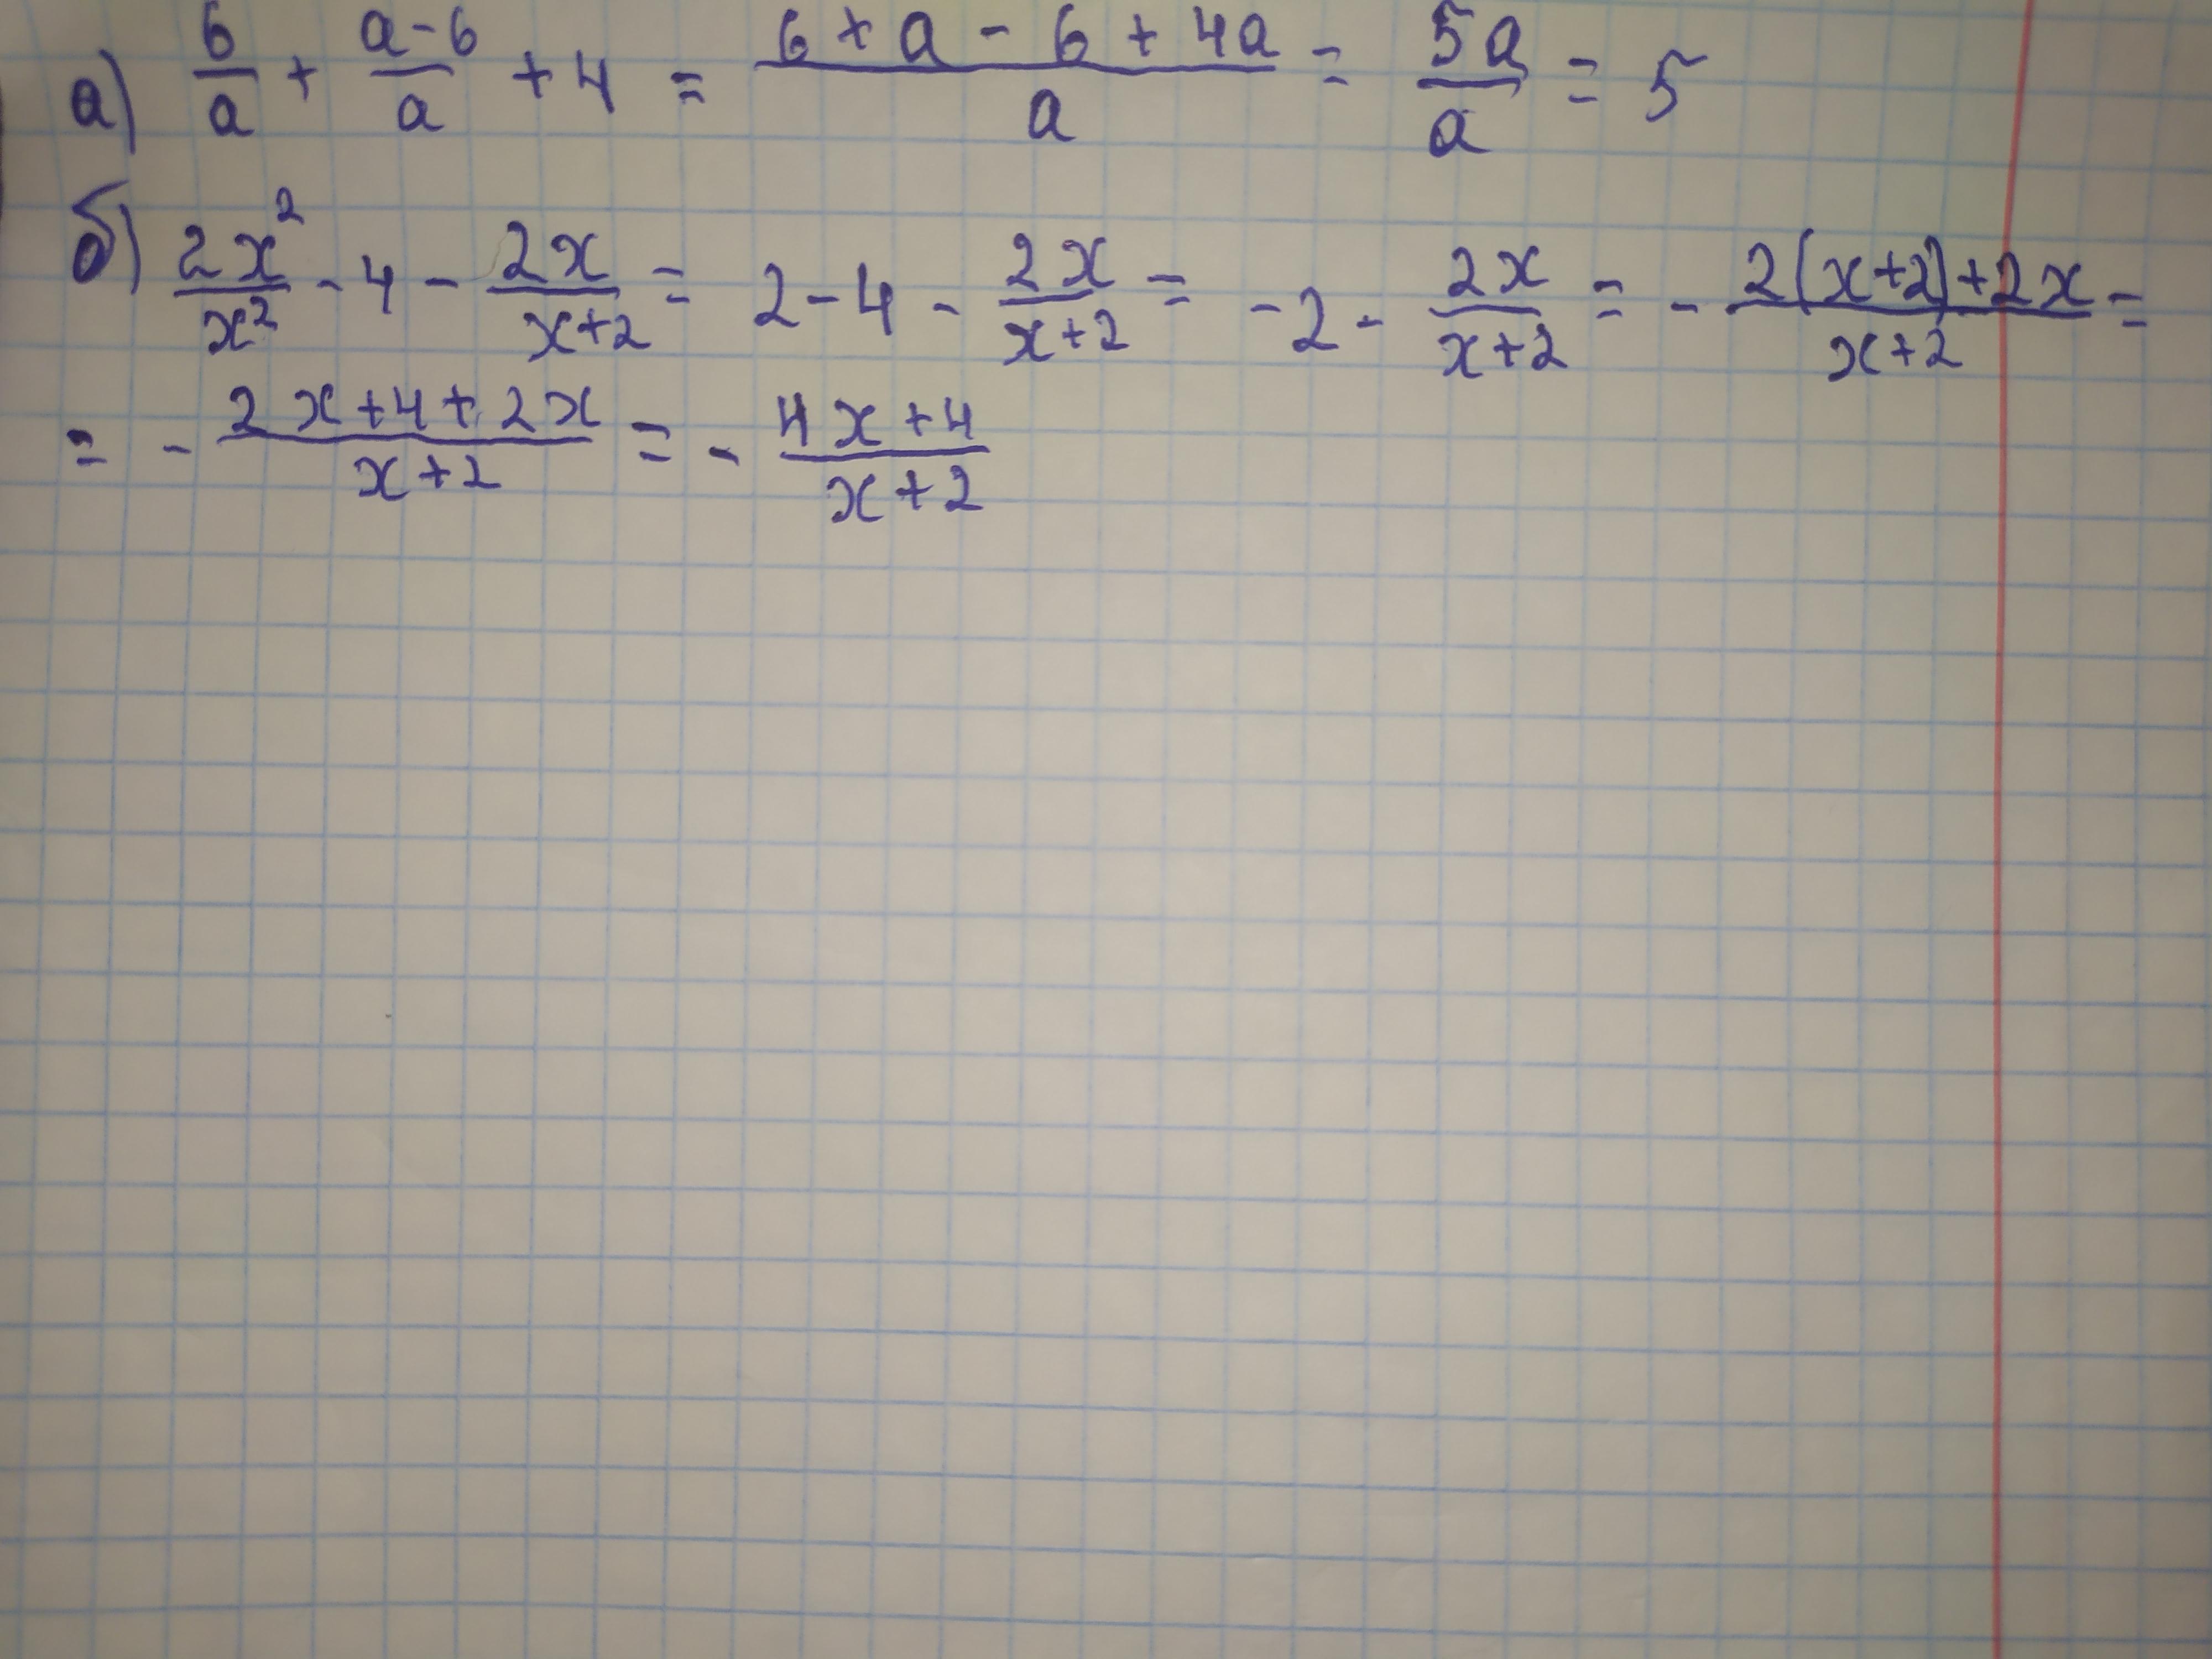 а) 6/a + a-6/a + 4 = 6+a-6+4a/a = 5a/a = 5
б) 2x²/x² - 4 - 2x/x+2 = 2-4 - 2x/x+2 = -2 - 2x/x+2 = - 2(x+2)+2x/x+2 =
= - 2x+4+2x/x+2 = - 4x+4/x+2